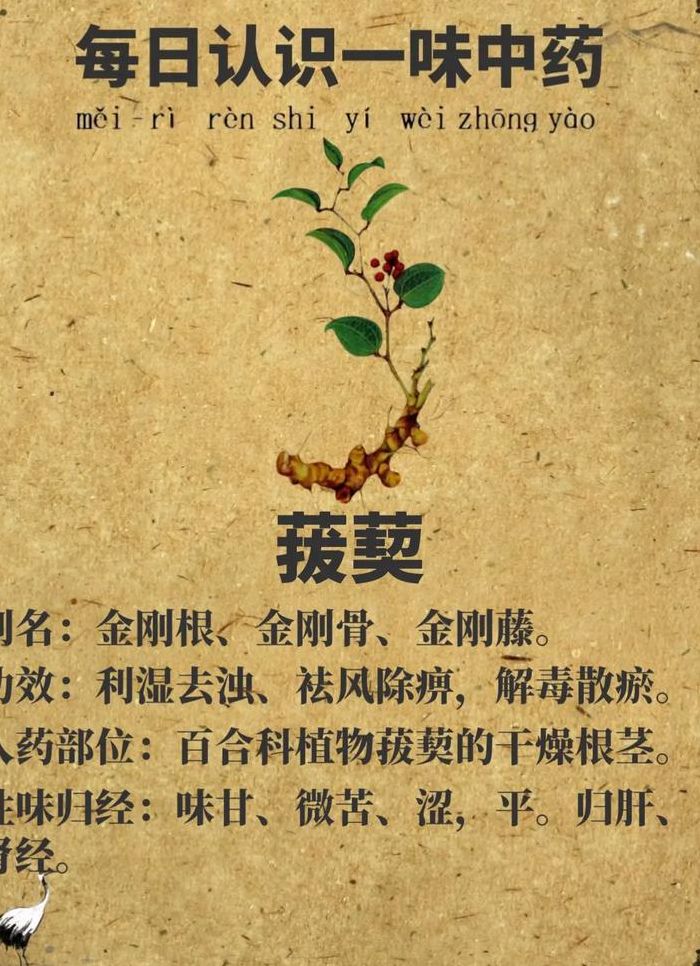 每日认识一味中药
měi-rì rèn shi yí wèi zhōng yào
菝葜
别名：金刚根、金刚骨、金刚藤。
功效：利湿去浊、祛风除痹，解毒散瘀。
入药部位：百合科植物菝葜的干燥根茎。
性味归经：味甘、微苦、涩，平。归肝、
肾经。